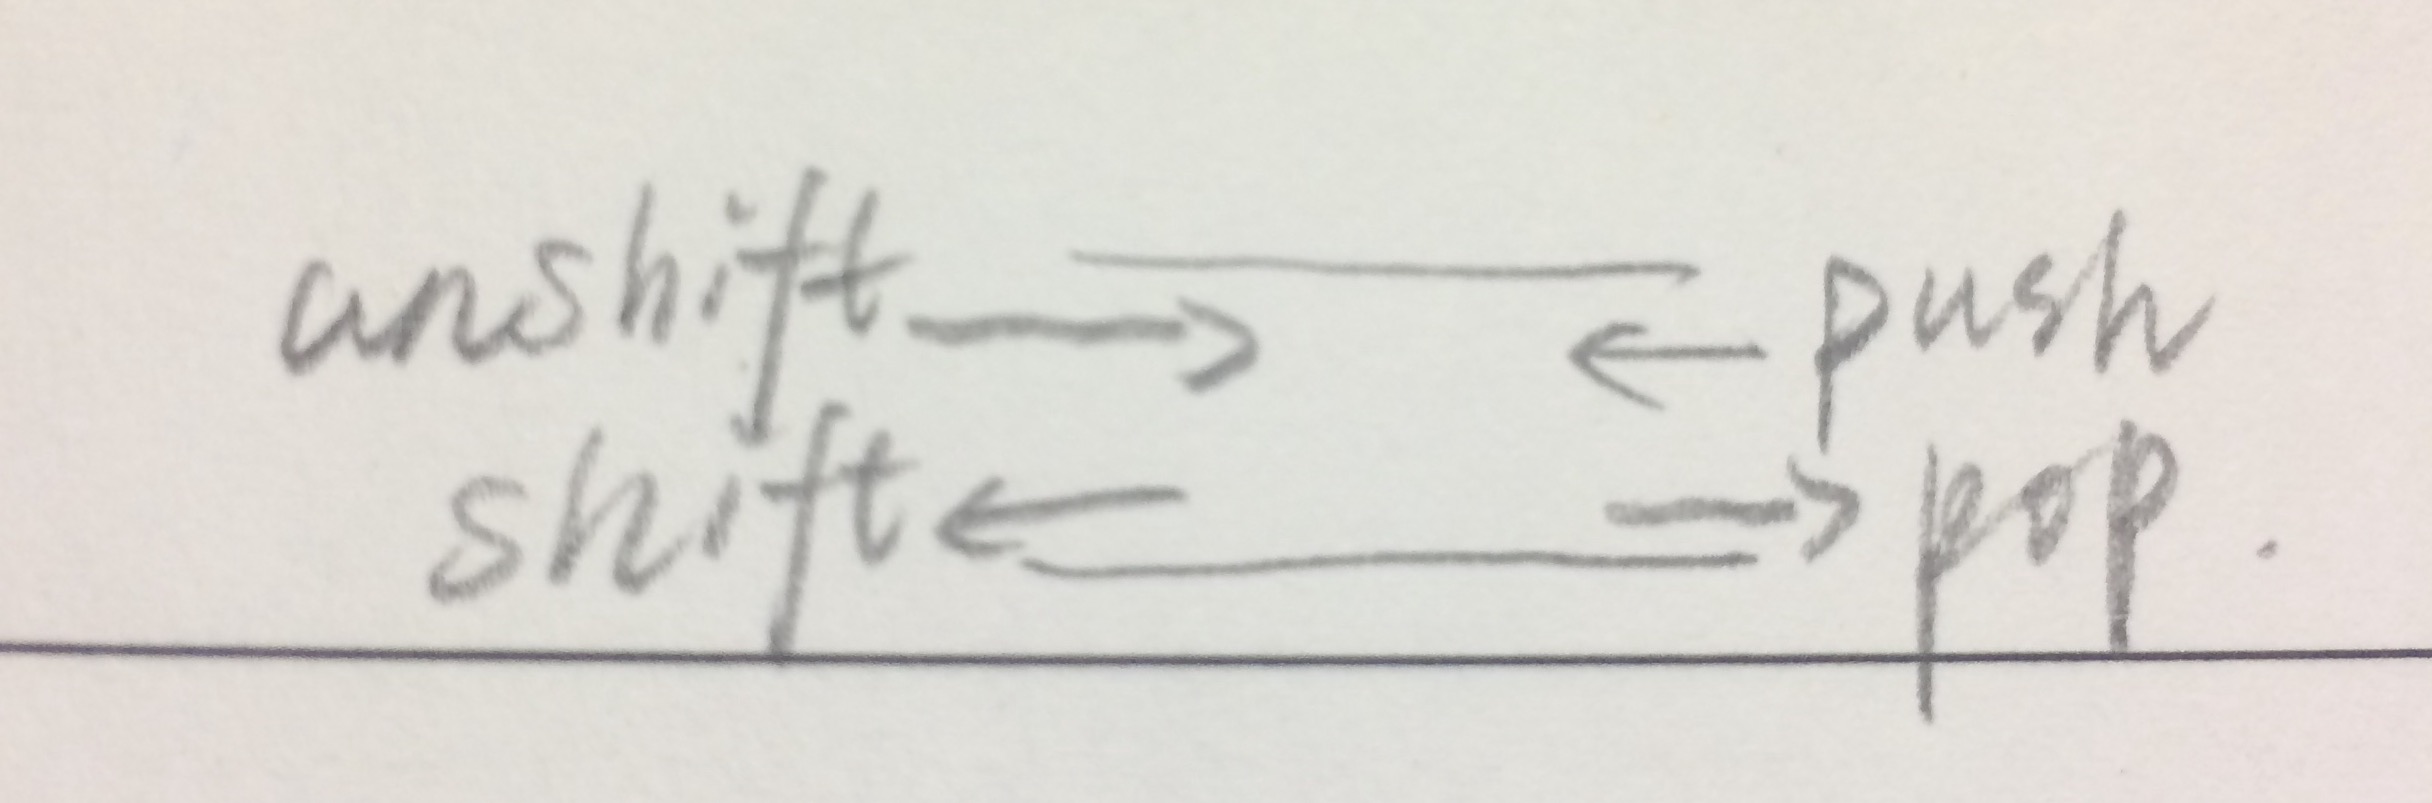 unshift → ← push
shift ← → pop.